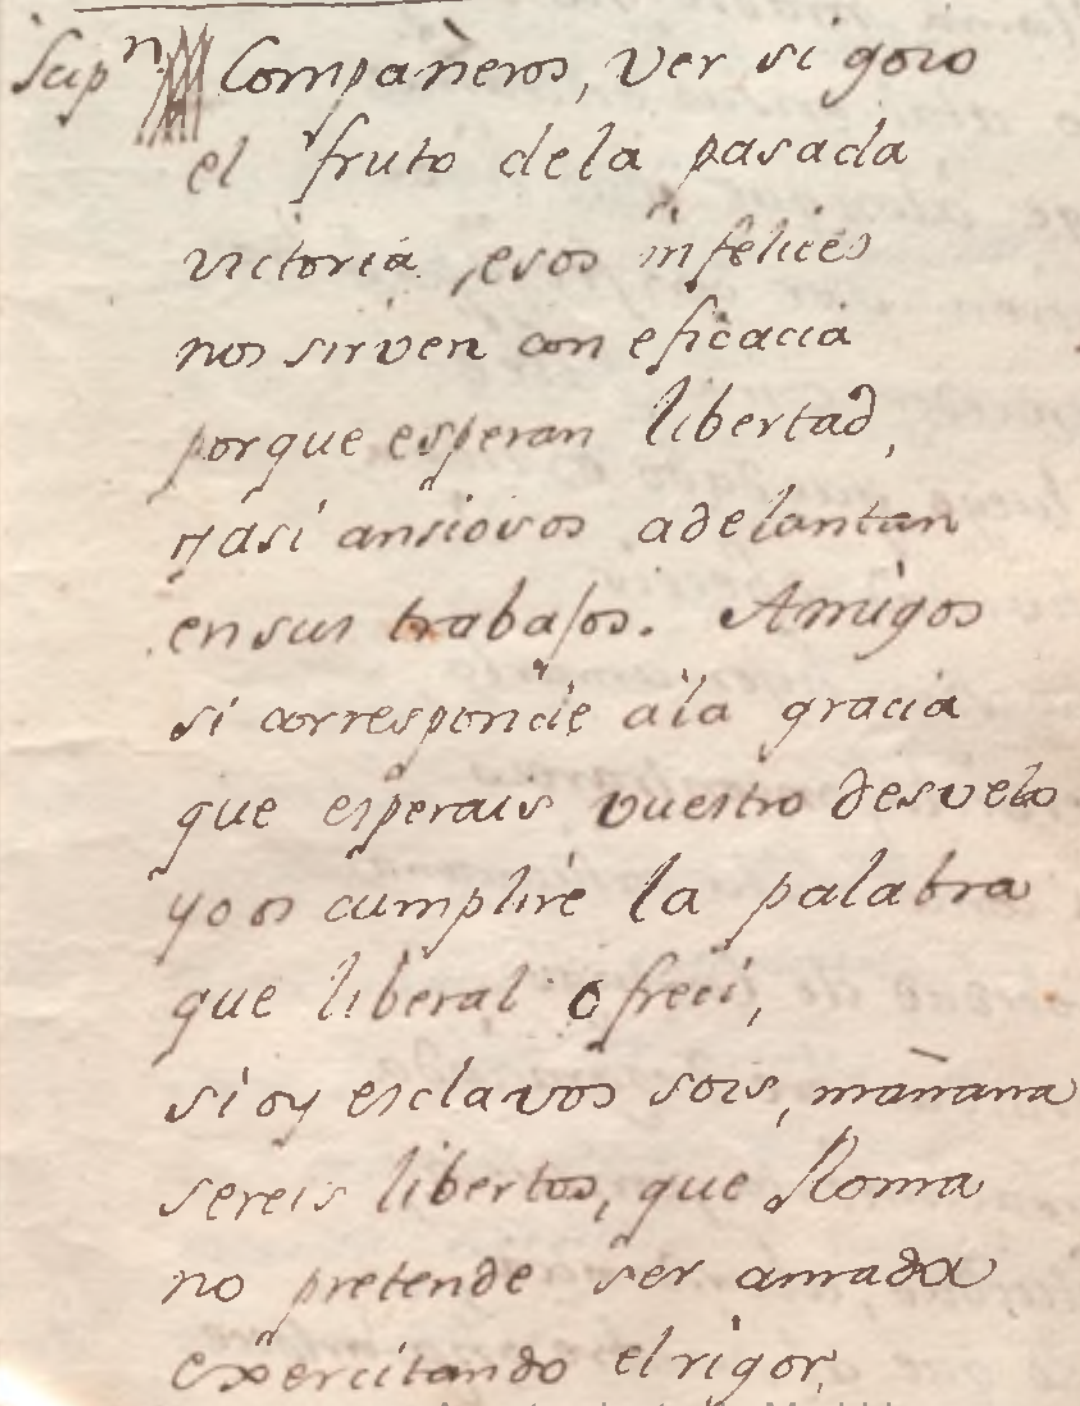 Scip.n Compañeros, ver si gozo
el fruto dela pasada
victoria, esos infelices
nos sirven con eficacia
porque esperan libertad,
y asi ansiosos adelantan
en sus trabajos. Amigos
si corresponde a la gracia
que esperais vuestro desvelo
yo os cumpliré la palabra
que liberal ofreci,
si oy esclavos sois, mañana
sereis libertos, que Roma
no pretende ser amada
exercitando el rigor,